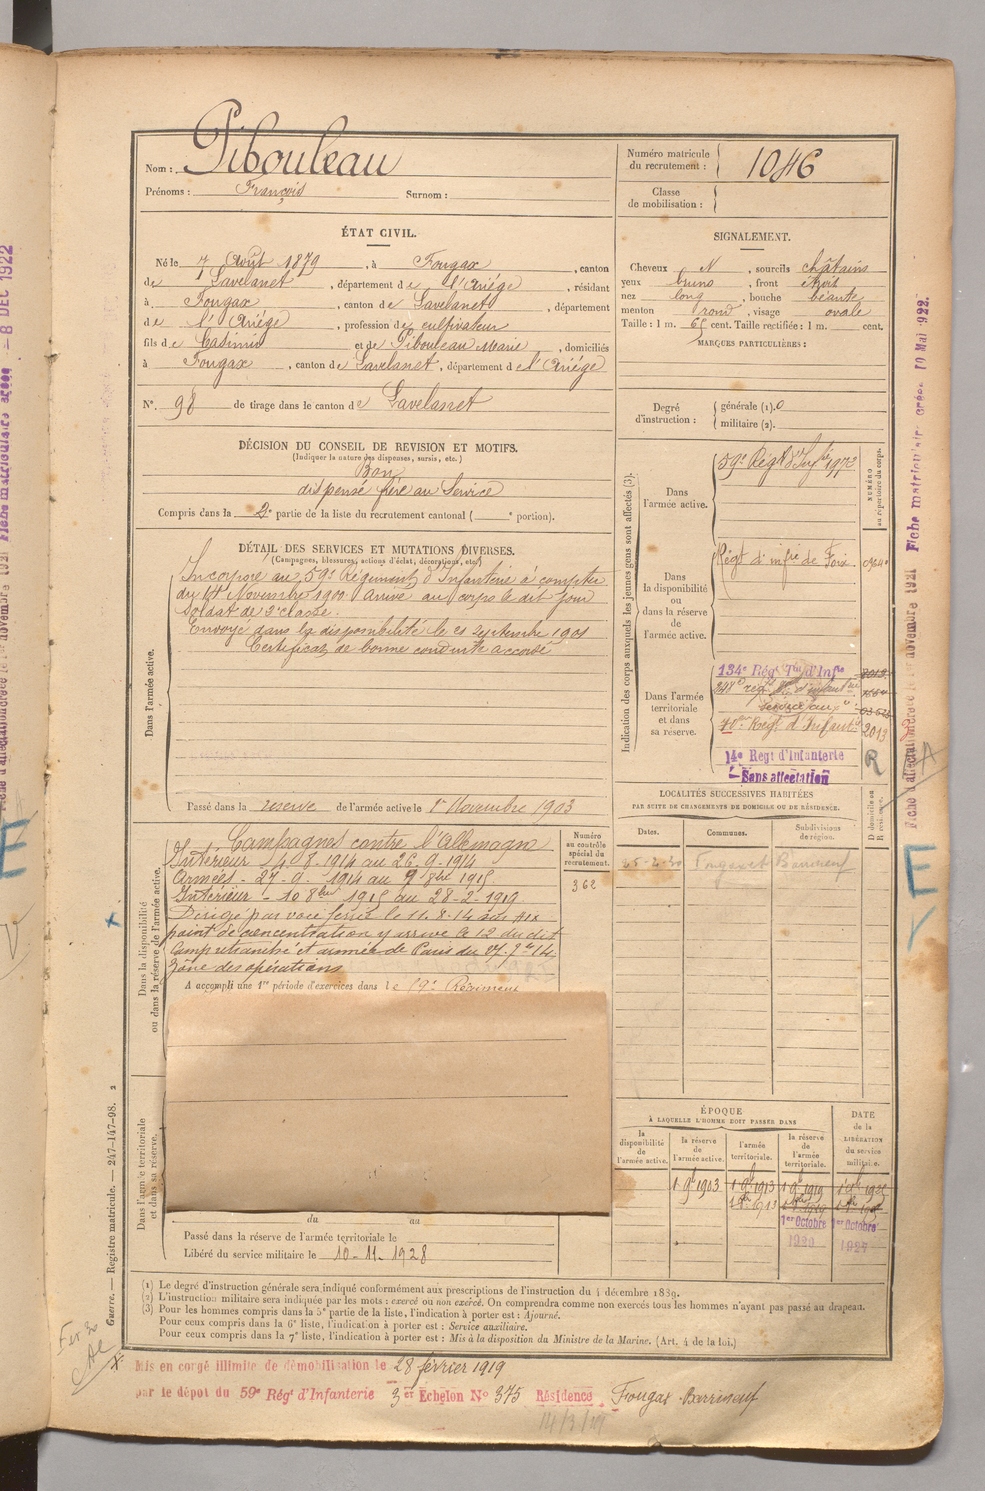 Nom : Pibouleau
Prénoms : François Surnom :
Numéro matricule du recrutement : 1046
Classe de mobilisation :
ÉTAT CIVIL.
Né le 7 Août 1879, à Fougax, canton
de Lavelanet, département de l'Ariége, résidant
à Fougax, canton de Lavelanet, département
de l'Ariége, profession de cultivateur
fils de Casimir et de Pibouleau Marie, domiciliés
à Fougax, canton de Lavelanet, département de l'Ariége
N°. 98 de tirage dans le canton de Lavelanet
SIGNALEMENT.
Cheveux N, sourcils châtains
yeux bruns, front étroit
nez long, bouche béante
menton rond, visage ovale
Taille : 1 m. 65 cent. Taille rectifiée : 1 m. cent.
MARQUES PARTICULIÈRES :
Degré d'instruction : générale (1). 0
militaire (2).
DÉCISION DU CONSEIL DE REVISION ET MOTIFS.
(Indiquer la nature des dispenses, sursis, etc.)
Bon
dispensé frère au Service
Compris dans la 2e partie de la liste du recrutement cantonal ( e portion).
DÉTAIL DES SERVICES ET MUTATIONS DIVERSES.
(Campagnes, blessures, actions d'éclat, décorations, etc.)
Dans l'armée active.
Incorporé au 59e Régiment d'Infanterie à compter
du Novembre 1900. Arrivé au corps le dit jour
soldat de 2e classe.
Envoyé dans la disponibilité le 21 septembre 1901
Certificat de bonne conduite accordé
Passé dans la réserve de l'armée active le 1er Novembre 1903
Indication des corps auxquels les jeunes gens sont affectés (3).
NUMÉRO au répertoire du corps.
Dans l'armée active.
59e Régt d'Infie
Dans la disponibilité ou dans la réserve de l'armée active.
Régt d'infie de Foix
Dans l'armée territoriale et dans sa réserve.
134e Régt Tal d'Infie
d'infanterie
Régt d'Infanterie 2013
14e Regt d'Infanterie
Sans affectation
R
LOCALITÉS SUCCESSIVES HABITÉES
PAR SUITE DE CHANGEMENTS DE DOMICILE OU DE RÉSIDENCE.
Dates. Communes. Subdivisions de région. D domicile ou R résidence.
Fougax et Barrineuf
Dans la disponibilité ou dans la réserve de l'armée active.
Numéro au contrôle spécial du recrutement.
362
Campagnes contre l'Allemagne
Intérieur 4-8-1914 au 26-9-1914
Armées - 27-9-1914 au 9 8bre 1915
Intérieur - 10 8bre 1915 au 28-2-1919
Dirigé par voie ferrée le 11-8-14 sur
point de concentration y arrive le 12 du dit
Camp retranché et armée de Paris du
zône des opérations
A accompli une 1re période d'exercices dans le Régiment
Dans l'armée territoriale et dans sa réserve.
du au
Passé dans la réserve de l'armée territoriale le
Libéré du service militaire le 10-11-1928
ÉPOQUE
À LAQUELLE L'HOMME DOIT PASSER DANS
la disponibilité de l'armée active.
la réserve de l'armée active.
l'armée territoriale.
la réserve de l'armée territoriale.
DATE de la LIBÉRATION du service militaire.
1er Octobre 1er Octobre
(1) Le degré d'instruction générale sera indiqué conformément aux prescriptions de l'instruction du 4 décembre 1889.
(2) L'instruction militaire sera indiquée par les mots : exercé ou non exercé. On comprendra comme non exercés tous les hommes n'ayant pas passé au drapeau.
(3) Pour les hommes compris dans la 5e partie de la liste, l'indication à porter est : Ajourné.
Pour ceux compris dans la 6e liste, l'indication à porter est : Service auxiliaire.
Pour ceux compris dans la 7e liste, l'indication à porter est : Mis à la disposition du Ministre de la Marine. (Art. 4 de la loi.)
Mis en congé illimité de démobilisation le 28 février 1919
par le dépôt du 59e Régt d'Infanterie 3er Echelon N° 375 Résidence Fougax-Barrineuf
14/3/19
Guerre. — Registre matricule. — 247-147-98. 2
Fiche matriculaire créée 19 Mai 1922.
Fiche d'affectation créée le 1er novembre 1921
-8 DEC 1922
E